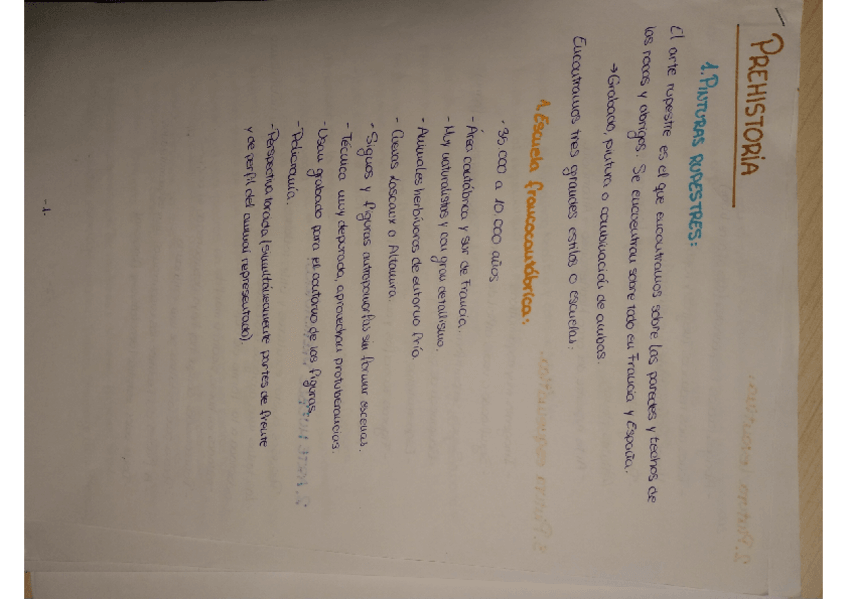 PREHISTORIA
1. PINTURAS RUPESTRES:
El arte rupestre es el que encontramos sobre las paredes y techos de
las rocas y abrigos. Se encuentran sobre todo en Francia y España.
→ Grabado, pintura o combinación de ambas.
Encontramos tres grandes estilos o escuelas:
1. Escuela francocantábrica:
· 35.000 a 10.000 años
- Área cantábrica y sur de Francia.
- Muy naturalistas y con gran detallismo.
- Animales herbívoros de entorno frío
- Cuevas Lascaux o Altamira
- Signos y figuras antropomorfas sin formar escenas.
- Técnica muy depurada, aprovechan protuberancias.
- Usan grabado para el contorno de las figuras
- Policromía.
- Perspectiva torcida (simultáneamente partes de frente
y de perfil del animal representado).
-1